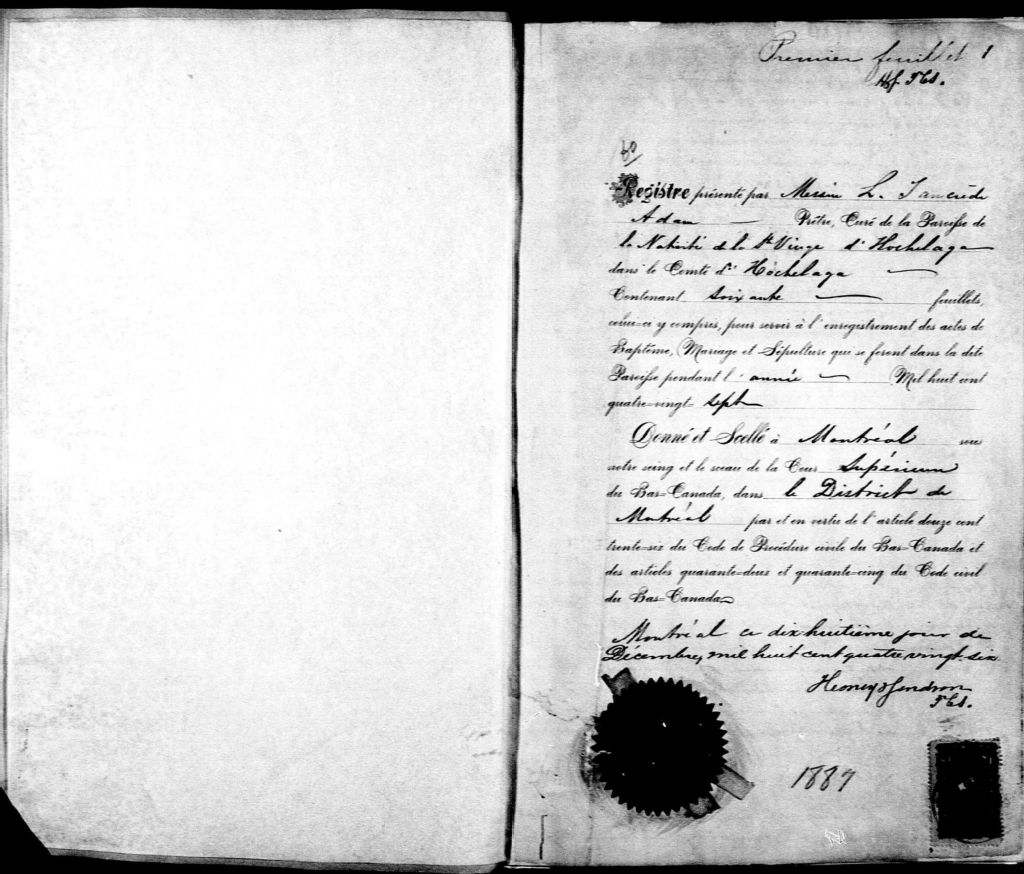 Premier feuillet 1
60
Registre présenté par Messire L. Tancrède
Adam — Prêtre, Curé de la Paroisse de
la Nativité de la Ste Vierge d'Hochelaga
dans le Comté d' Hochelaga —
Contenant soixante — feuillets,
celui-ci y compris, pour servir à l'enregistrement des actes de
Baptême, Mariage et Sépulture qui se feront dans la dite
Paroisse pendant l'année — Mil huit cent
quatre-vingt-sept
Donné et Scellé à Montréal sous
notre seing et le sceau de la Cour Supérieure
du Bas-Canada, dans le District de
Montréal par et en vertu de l'article douze cent
trente-six du Code de Procédure civile du Bas-Canada et
des articles quarante-deux et quarante-cinq du Code civil
du Bas-Canada
Montréal ce dix huitième jour de
Décembre, mil huit cent quatre vingt-six
1887